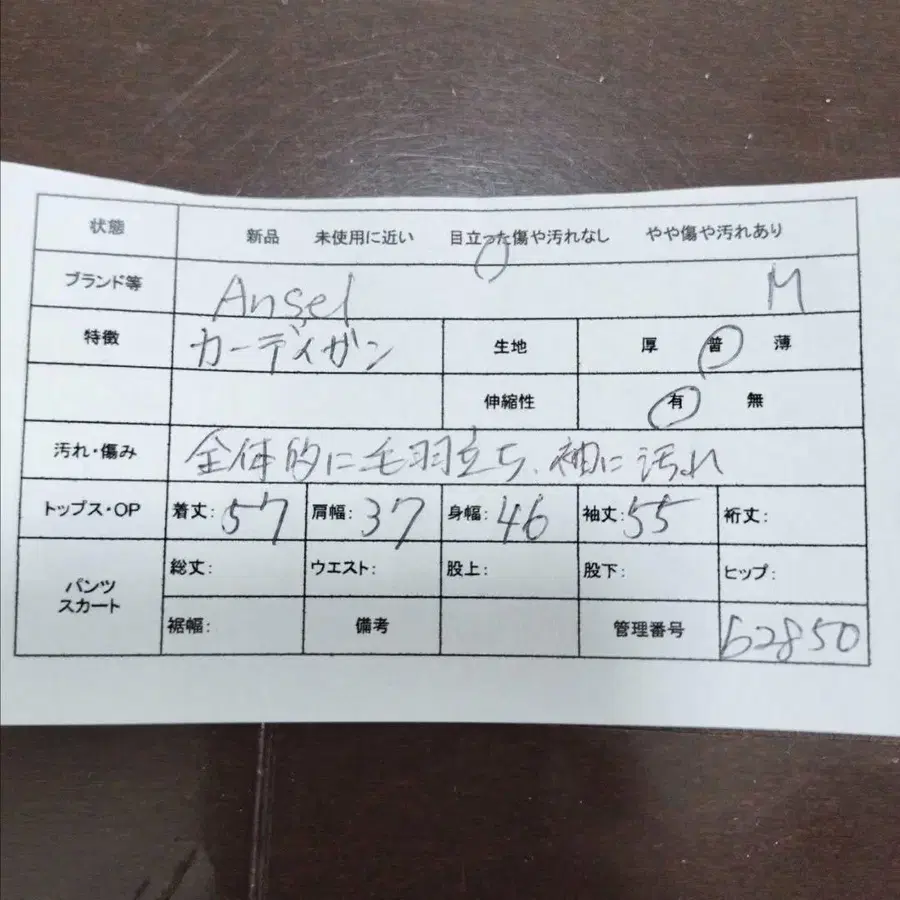 状態 新品 未使用に近い 目立った傷や汚れなし やや傷や汚れあり
ブランド等 Ansel M
特徴 カーディガン 生地 厚 普 薄
伸縮性 有 無
汚れ・傷み 全体的に毛羽立ち、袖に汚れ
トップス・OP 着丈: 57 肩幅: 37 身幅: 46 袖丈: 55 裄丈:
パンツ スカート 総丈: ウエスト: 股上: 股下: ヒップ:
裾幅: 備考 管理番号 62850